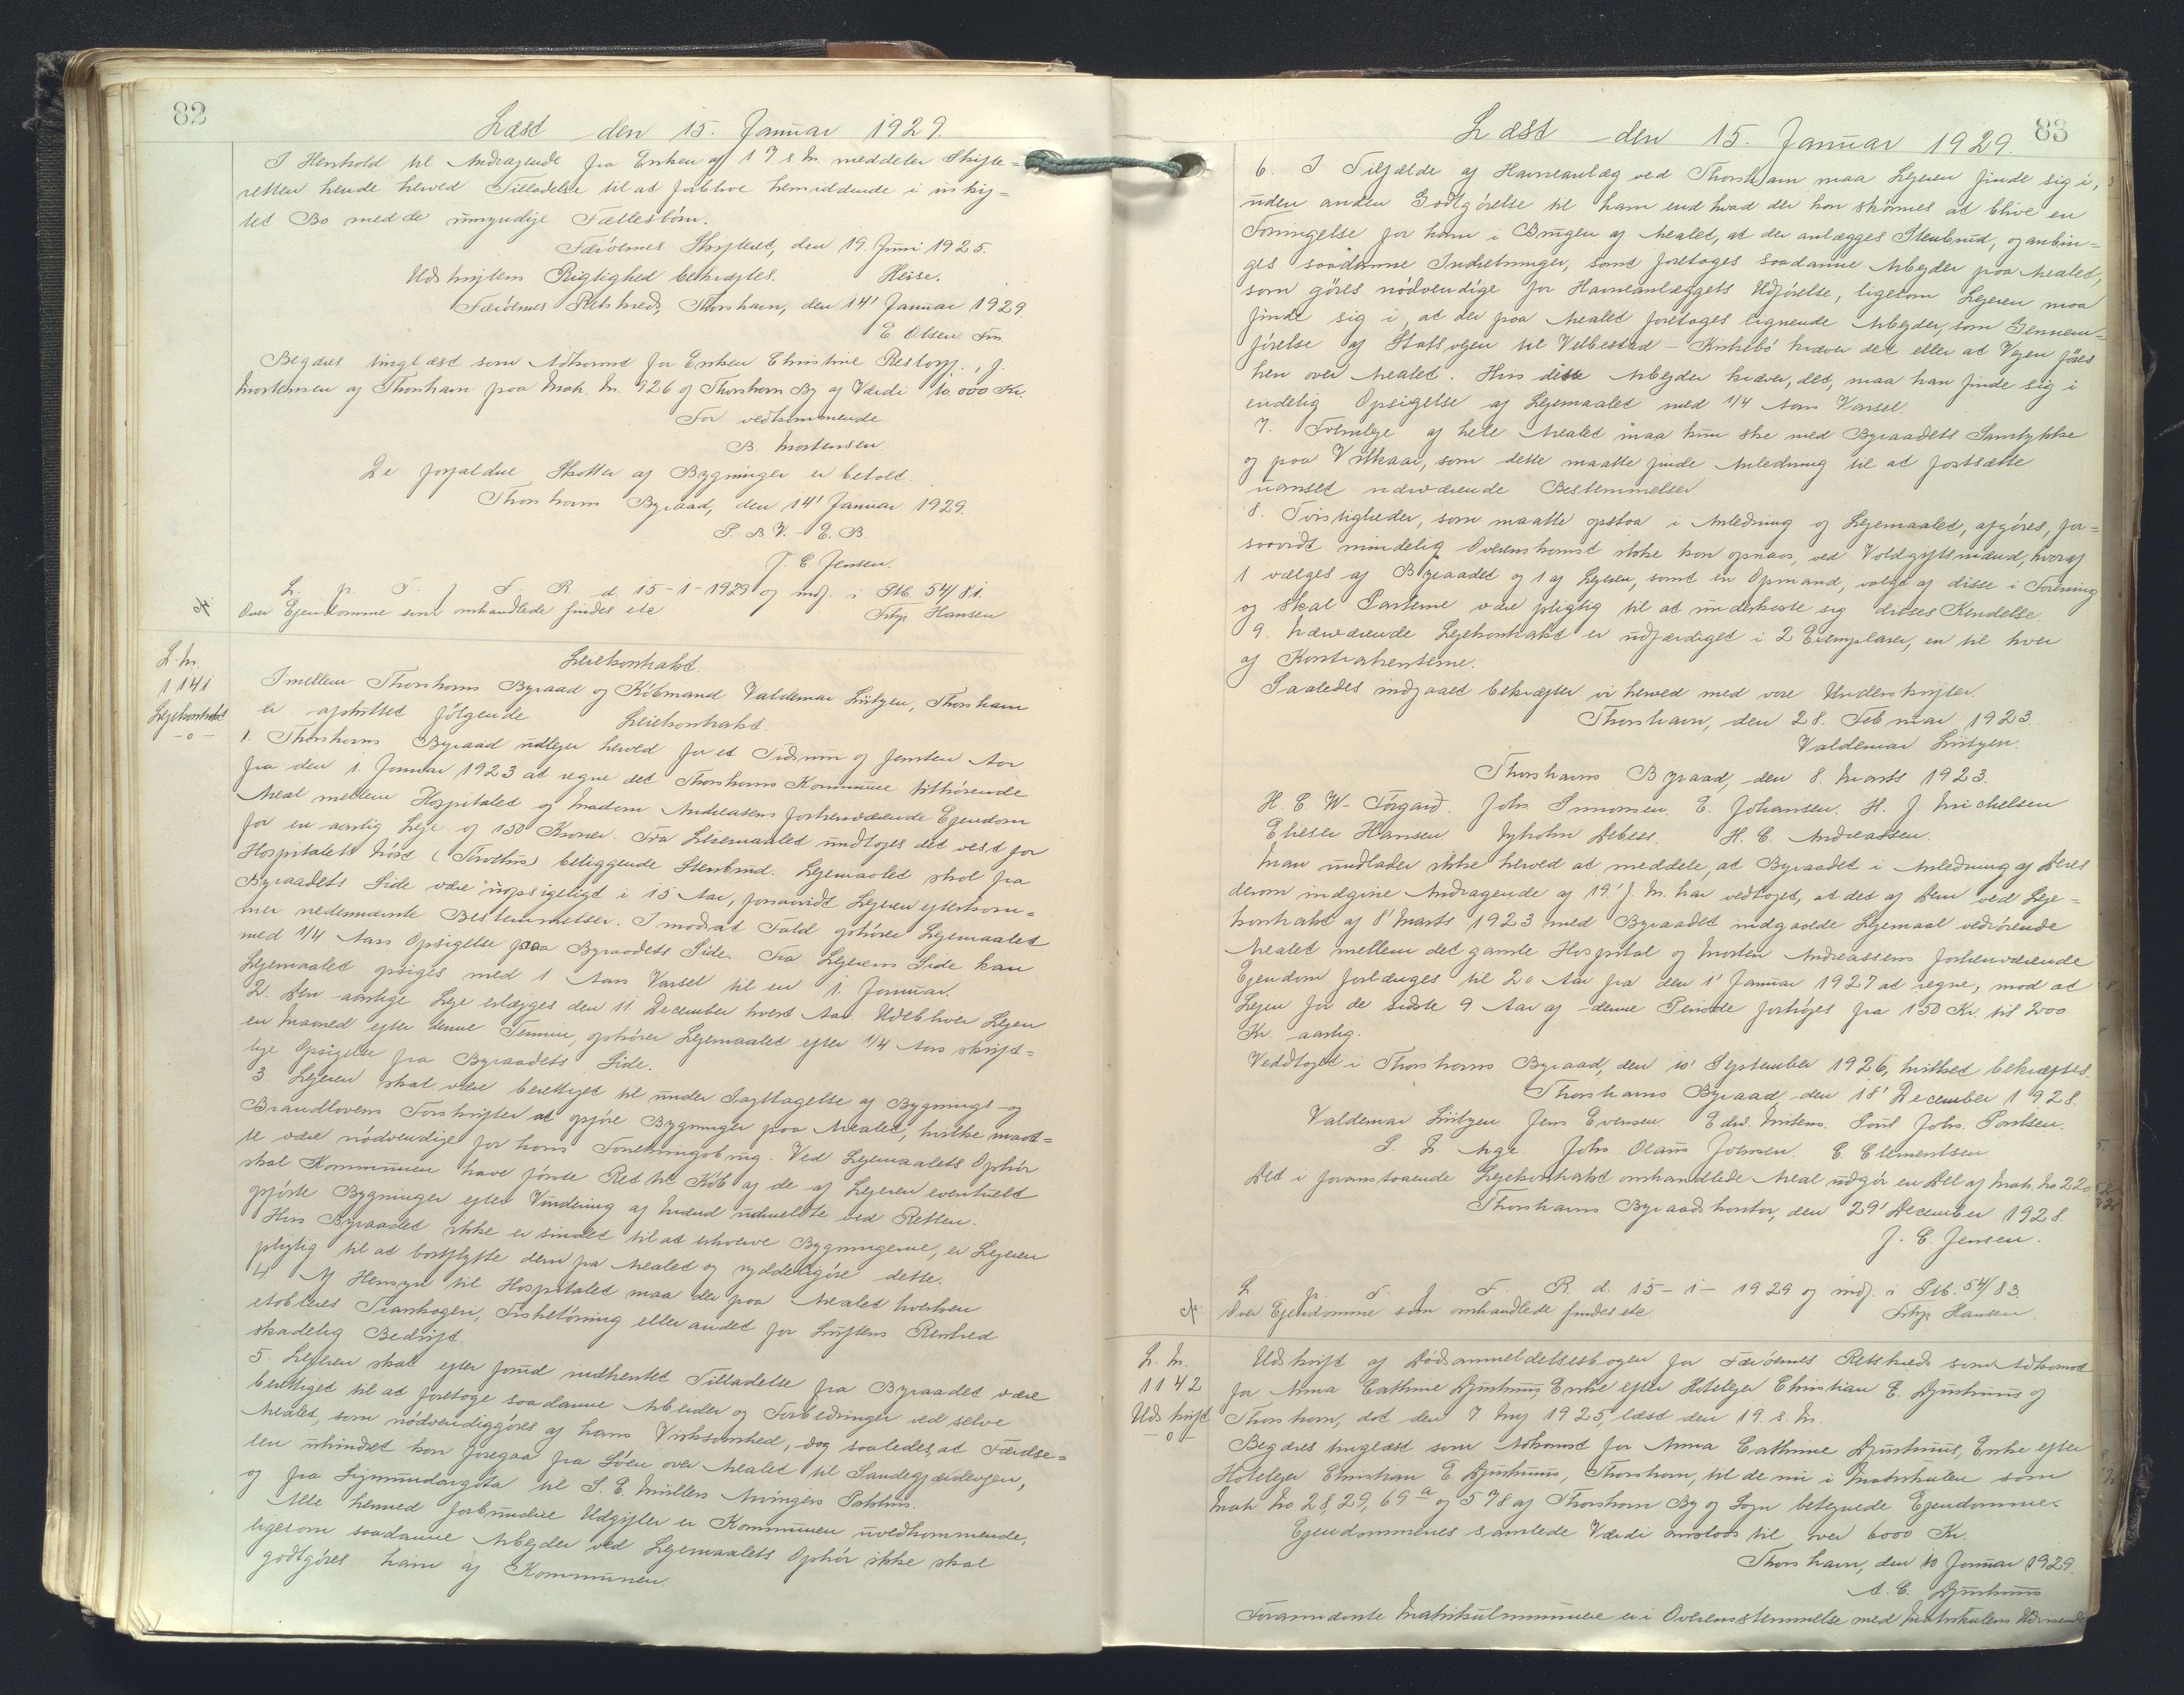 82
Læst den 15. Januar 1929.
I Henhold til Andragende fra Enken af 17 s. M. meddeler Skifte=
retten hende herved Tilladelse til at forblive hensiddende i uskif=
tet Bo med de umyndige Fællesbørn.
Færöernes Skifteret, den 19. Juni 1925.
Heise.
Udskriftens Rigtighed bekræftes.
Færöernes Retskreds, Thorshavn, den 14' Januar 1929.
E. Olsen Fm.
Begæres tinglæst som Adkomst for Enken Christine Restorff, f.
Mortensen af Thorshavn paa Matr. Nr. 926 af Thorshavn By af Værdi 10.000 Kr.
For vedkommende
B. Mortensen.
De forfaldne Skatter af Bygninger er betalt.
Thorshavns Byraad, den 14' Januar 1929.
P. B. V. E. B.
J. C. Jensen.
L. p. T. f. F. R. d. 15-1-1929 og indf. i Ptb. 54/81.
Over Ejendomme som omhandlede findes ete
Filip Hansen
L. Nr.
1141
Lejekontrakt
-o-
Leiekontrakt.
Imellem Thorshavns Byraad og Köbmand Valdemar Lützen, Thorshavn
er afsluttet fölgende Leiekontrakt.
1. Thorshavns Byraad udlejer herved for et Tidsrum af femten Aar
fra den 1. Januar 1923 at regne det Thorshavns Kommune tilhörende
Areal mellem Hospitalet og Madam Andreasens forhenværende Ejendom
for en aarlig Leje af 150 Kroner. Fra Leiemaalet undtages det vest for
Hospitalets Nöst beliggende Stenbrud. Lejemaalet skal fra
Byraadets Side være uopsigeligt i 15 Aar, forsaavidt Lejeren efterkom=
mer nedennævnte Bestemmelser. I modsat Fald ophörer Lejemaalet
med 1/4 Aars Opsigelse fra Byraadets Side. Fra Lejerens Side kan
Lejemaalet opsiges med 1 Aars Varsel til en 1. Januar.
2. Den aarlige Leje erlægges den 11. December hvert Aar. Udebliver Lejen
en Maaned efter denne Termin, ophörer Lejemaalet efter 1/4 Aars skrift=
lige Opsigelse fra Byraadets Side.
3. Lejeren skal være berettiget til under Iagttagelse af Bygnings- og
Brandlovens Forskrifter at opföre Bygninger paa Arealet, hvilke maat=
te være nödvendige for hans Forretningsbrug. Ved Lejemaalets Ophör
skal Kommunen have förste Ret til Köb af de af Lejeren eventuelt
opförte Bygninger efter Vurdering af Mænd udmeldte ved Retten.
Hvis Byraadet ikke er sindet til at erhverve Bygningerne, er Lejeren
pligtig til at bortflytte dem fra Arealet og ryddeliggöre dette.
4. Af Hensyn til Hospitalet maa der paa Arealet hverken
etableres Trankogeri, Fisketörring eller andet for Luftens Renhed
skadelig Bedrift.
5. Lejeren skal efter forud indhentet Tilladelse fra Byraadet være
berettiget til at foretage saadanne Arbeider og Forbedringer ved selve
Arealet, som nödvendiggöres af hans Virksomhed, dog saaledes, at Færdse=
len uhindret kan foregaa fra Söen over Arealet til Sandegjærdevejen,
og fra Sigmundargöta til S. E. Müllers Arvingers Pakhus.
Alle hermed forbundne Udgifter er Kommunen uvedkommende,
ligesom saadanne Arbejder ved Lejemaalets Ophör ikke skal
godtgöres ham af Kommunen.
83
Læst den 15. Januar 1929.
6. I Tilfælde af Havneanlæg ved Thorshavn maa Lejeren finde sig i,
uden anden Godtgörelse til ham end hvad der kan skönnes at blive en
Forringelse for ham i Brugen af Arealet, at der anlægges Stenbrud, og anbrin=
ges saadanne Indretninger, samt foretages saadanne Arbejder paa Arealet,
som göres nödvendige for Havneanlæggets Udförelse, ligesom Lejeren maa
finde sig i, at der paa Arealet foretages lignende Arbejder, som Gennem=
förelse af Statsvejen til Velbestad - Kirkebö kræver det eller at Vejen föres
hen over Arealet. Hvis disse Arbejder kræver det, maa han finde sig i
endelig Opsigelse af Lejemaalet med 1/4 Aars Varsel.
7. Fremleje af hele Arealet maa kun ske med Byraadets Samtykke
og paa Vilkaar, som dette maatte finde Anledning til at fortsætte
uanset nærværende Bestemmelser.
8. Tvistigheder, som maatte opstaa i Anledning af Lejemaalet, afgöres, for=
saavidt mindelig Overenskomst ikke kan opnaas, ved Voldgiftsmænd, hvoraf
1 vælges af Byraadet og 1 af Lejeren, samt en Opmand, valgt af disse i Forening
og skal Parterne være pligtig til at underkaste sig disses Kendelse.
9. Nærværende Lejekontrakt er udfærdiget i 2 Exemplarer, en til hver
af Kontrahenterne.
Saaledes indgaaet bekræfter vi herved med vore Underskrifter
Thorshavn, den 28. Februar 1923.
Valdemar Lützen.
Thorshavns Byraad, den 8. Marts 1923.
H. C. W. Törgard. Johs Simonsen. E. Johansen. H. J. Michelsen
Elieser Hansen Nyholm Debess. H. C. Andreassen.
Man undlader ikke herved at meddele, at Byraadet i Anledning af Deres
derom indgivne Andragende af 19' f. M. har vedtaget, at det af Dem ved Leje=
kontrakt af 8' Marts 1923 med Byraadet indgaaede Lejemaal vedrörende
Arealet mellem det gamle Hospital og Morten Andreassens forhenværende
Ejendom forlænges til 20 Aar fra den 1' Januar 1927 at regne, mod at
Lejen for de sidste 9 Aar af denne Periode forhöjes fra 150 Kr. til 200
Kr. aarlig.
Vedtaget i Thorshavns Byraad, den 10' September 1926, hvilket bekræftes.
Thorshavns Byraad, den 18' December 1928.
Valdemar Lützen. Jens Evensen. Edw. Mitens. Poul Johs. Poulsen.
S. N. Arge. Johs. Olaus Joensen. E. Clementsen.
Det i foranstaaende Lejekontrakt omhandlede Areal udgör en Del af Matr. No 220
Thorshavns Byraadskontor, den 29' December 1928.
J. C. Jensen.
L. p. T. f. F. R. d. 15-1-1929 og indf. i Ptb. 54/83.
Over Ejendomme som omhandlede findes ete.
Filip Hansen
L. Nr.
1142
Udskrift
-o-
Udskrift af Dödsanmeldelsesbogen for Færöernes Retskreds som Adkomst
for Anna Cathrine Djurhuus, Enke efter Hotelejer Christian E. Djurhuus af
Thorshavn, död den 7 Maj 1925, læst den 19. s. M.
Begæres tinglæst som Adkomst for Anna Cathrine Djurhuus, Enke efter
Hotelejer Christian E. Djurhuus, Thorshavn, til de nu i Matrikulen som
Matr No 28, 29, 69a og 578 af Thorshavn By og Sogn betegnede Ejendomme.
Ejendommenes samlede Værdi anslaas til over 6000 Kr.
Thorshavn, den 10 Januar 1929.
A. C. Djurhuus
Forannævnte Matrikulnumre er i Overensstemmelse med Matrikulens Udvisende